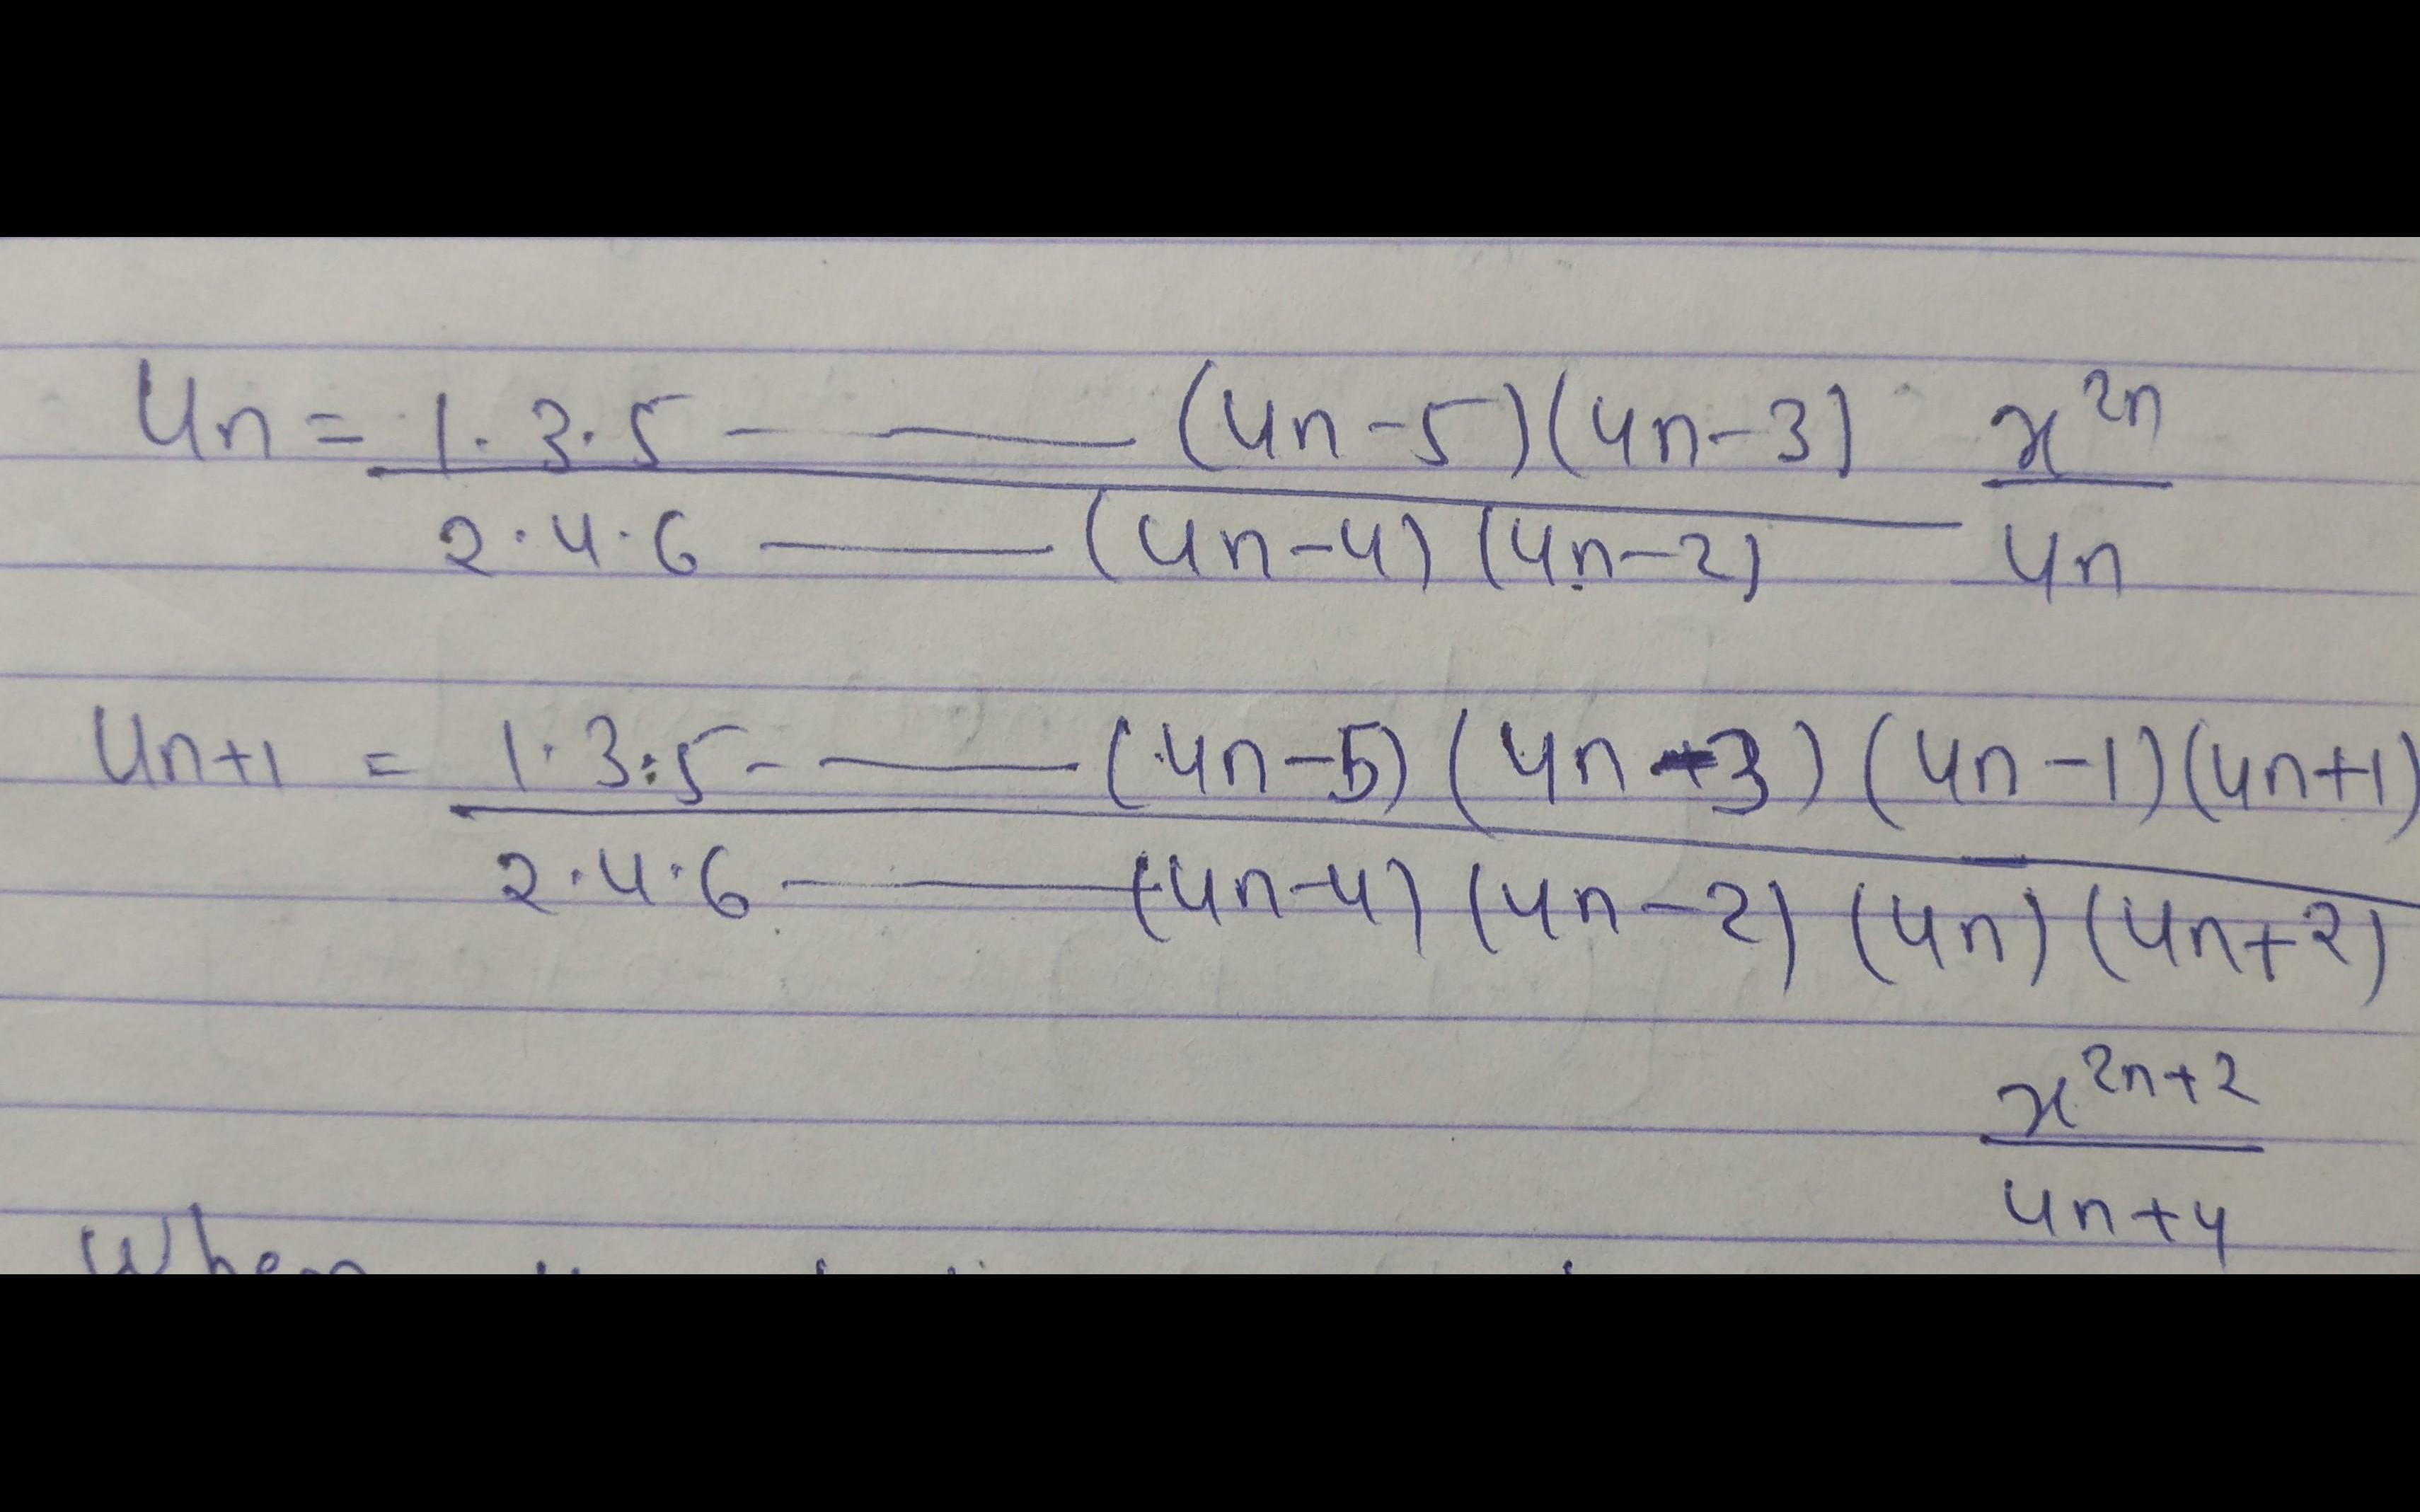 Un = 1·3·5 - —— (4n-5)(4n-3) x^2n
2·4·6 —— (4n-4)(4n-2) 4n
Un+1 = 1·3·5 - —— (4n-5)(4n-3)(4n-1)(4n+1)
2·4·6 - —— (4n-4)(4n-2)(4n)(4n+2)
x^2n+2
4n+4
When